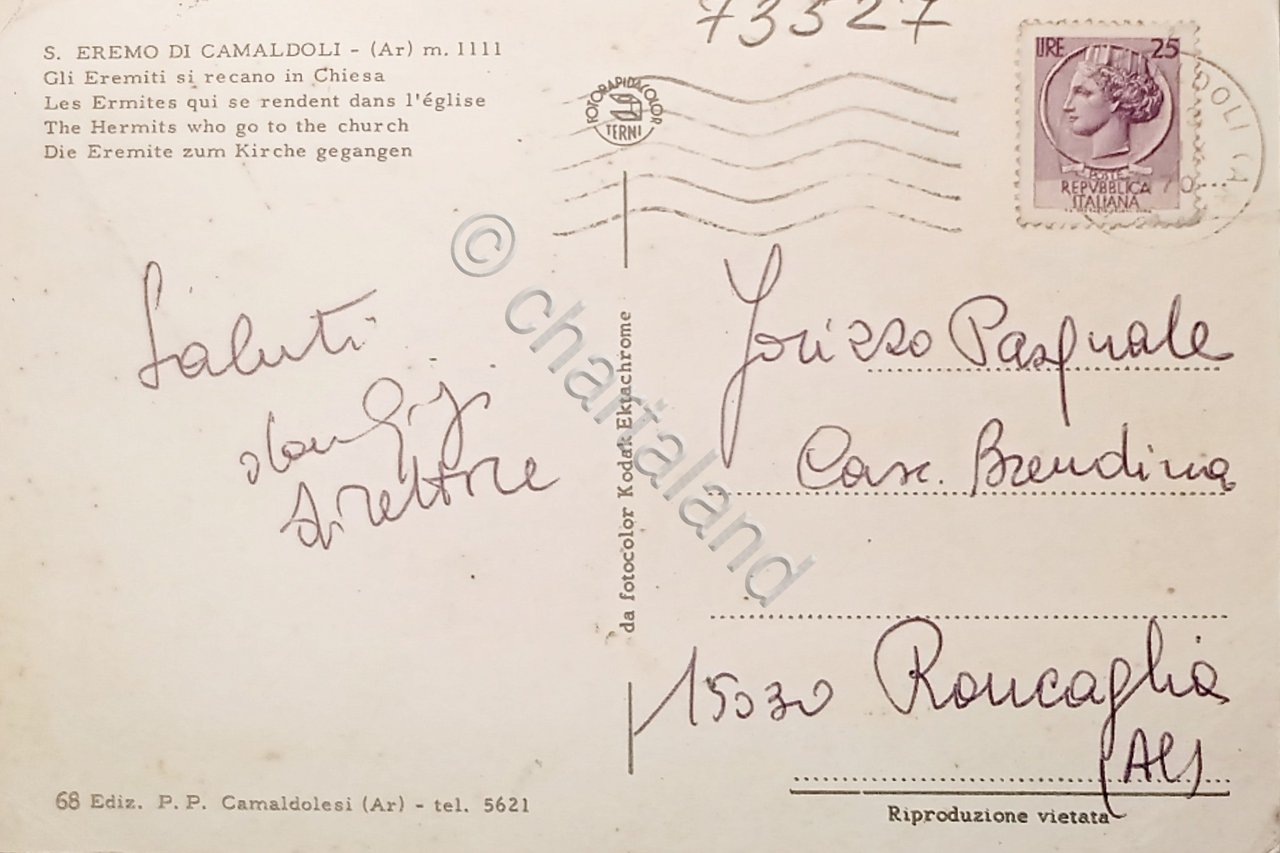 73527
S. EREMO DI CAMALDOLI - (Ar) m. 1111
Gli Eremiti si recano in Chiesa
Les Ermites qui se rendent dans l'église
The Hermits who go to the church
Die Eremite zum Kirche gegangen
FOTORAPIDACOLOR
TERNI
LIRE 25
POSTE
REPVBBLICA
ITALIANA
DOLI (A
70
Saluti
direttore
da fotocolor Kodak Ektachrome
Pasquale
Casc. Brendina
15030 Roncaglia
(Al)
68 Ediz. P. P. Camaldolesi (Ar) - tel. 5621
Riproduzione vietata
© chartaland